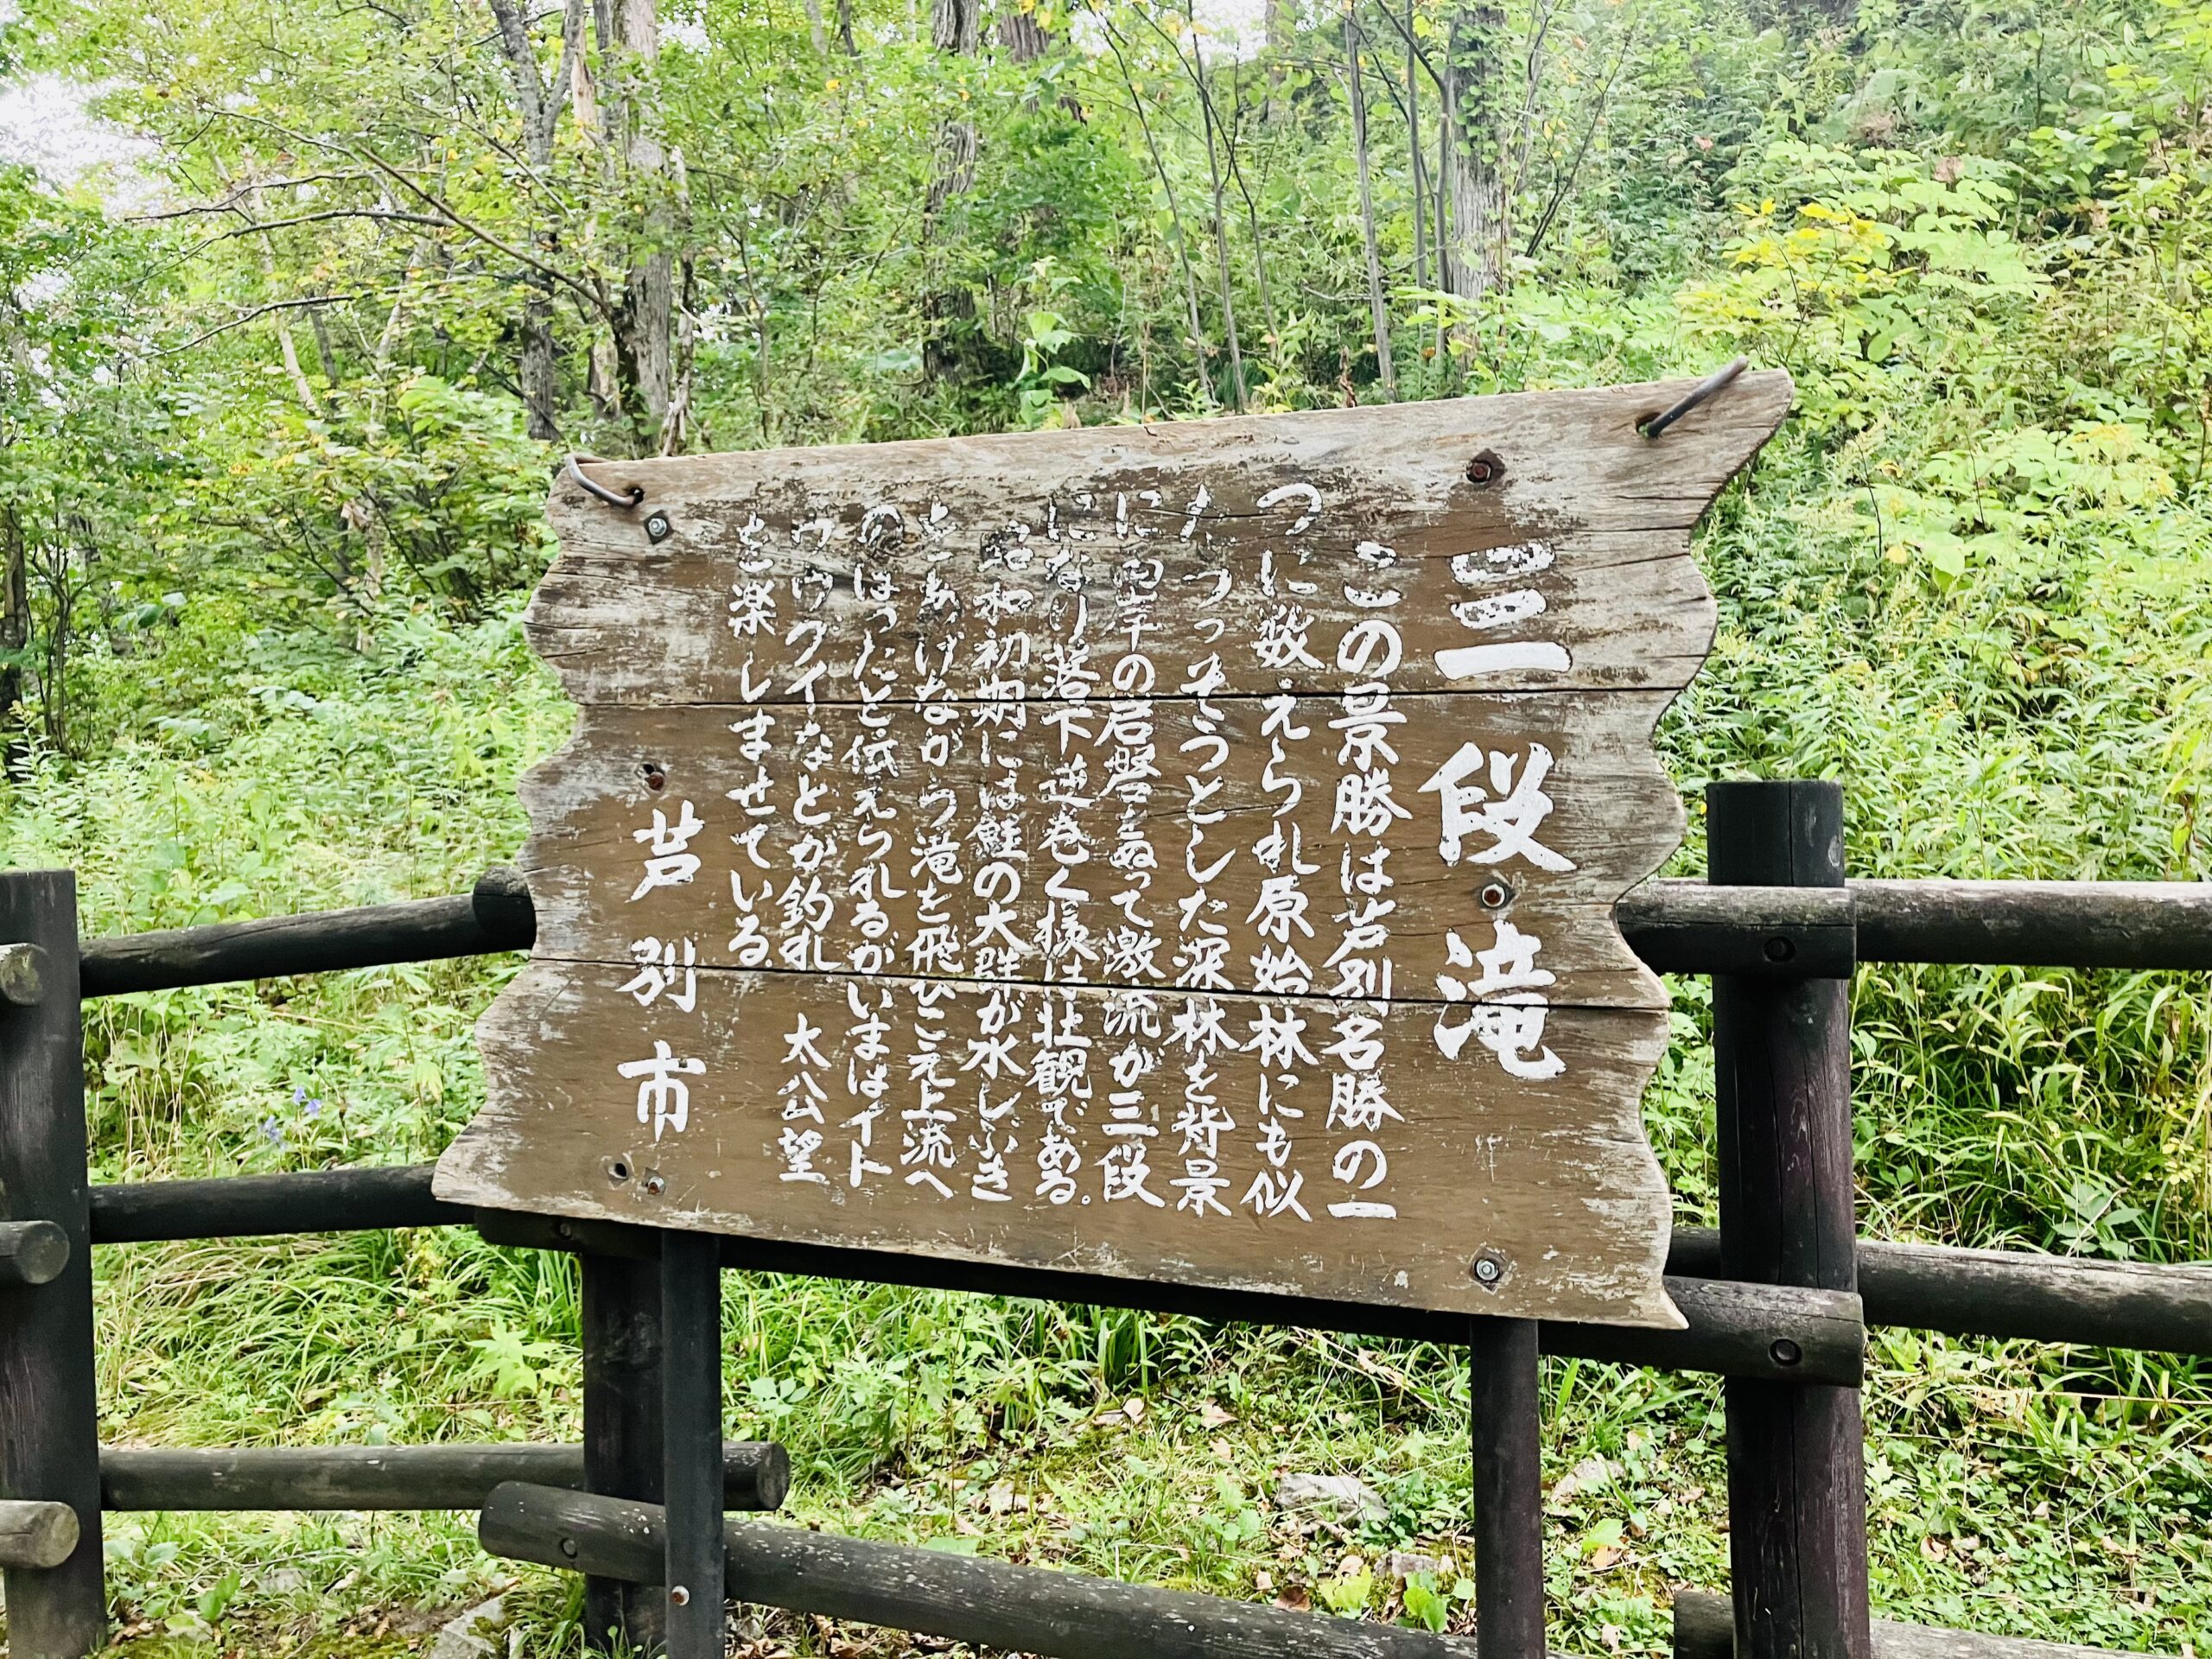 三段滝
この景勝は芦別名勝の一
つに数えられ原始林にも似
たうっそうとした深林を背景
に両岸の岩盤をぬって激流が三段
になり落下逆巻く様は壮観である。
昭和初期には鮭の大群が水しぶき
をあげながら滝を飛びこえ上流へ
のぼったと伝えられるがいまはイト
ウウグイなどが釣れ 太公望
を楽しませている。
芦別市